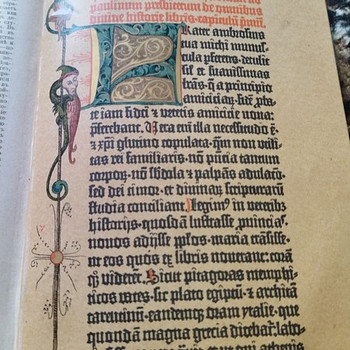 paulinum presbiterum de omnibus
divine historie libris. capitulū pmū.
FRater ambrosius
tua michi munus-
cula pferens. detulit
sil' et suavissimas
lrās. q̄ a principio
amiciciaꝝ. fidē pba-
te iam fidei ⁊ veteris amicicie nova:
pferebant. Vera enī illa necessitudo ē.
⁊ xpī glutino copulata: qm non utili-
tas rei familiaris. nō pncia tantum
corpoꝝ. nō sbdola ⁊ palpās adulacō:
sed dei timor. et divinaꝝ scripturarum
studia conciliant. Legimꝰ in veteribꝫ
historijs. quosdā lustrasse pvincias.
novos adijsse pplos. maria trāsisse.
ut eos quos ex libris noverant: corā
qꝫ viderēt. Sicut pitagoras memphi-
ticos vates. sic plato egiptū. ⁊ architā
tarentinū. eandemqꝫ oram ytalie. que
quondā magna grecia dicebat: labo-
athenis